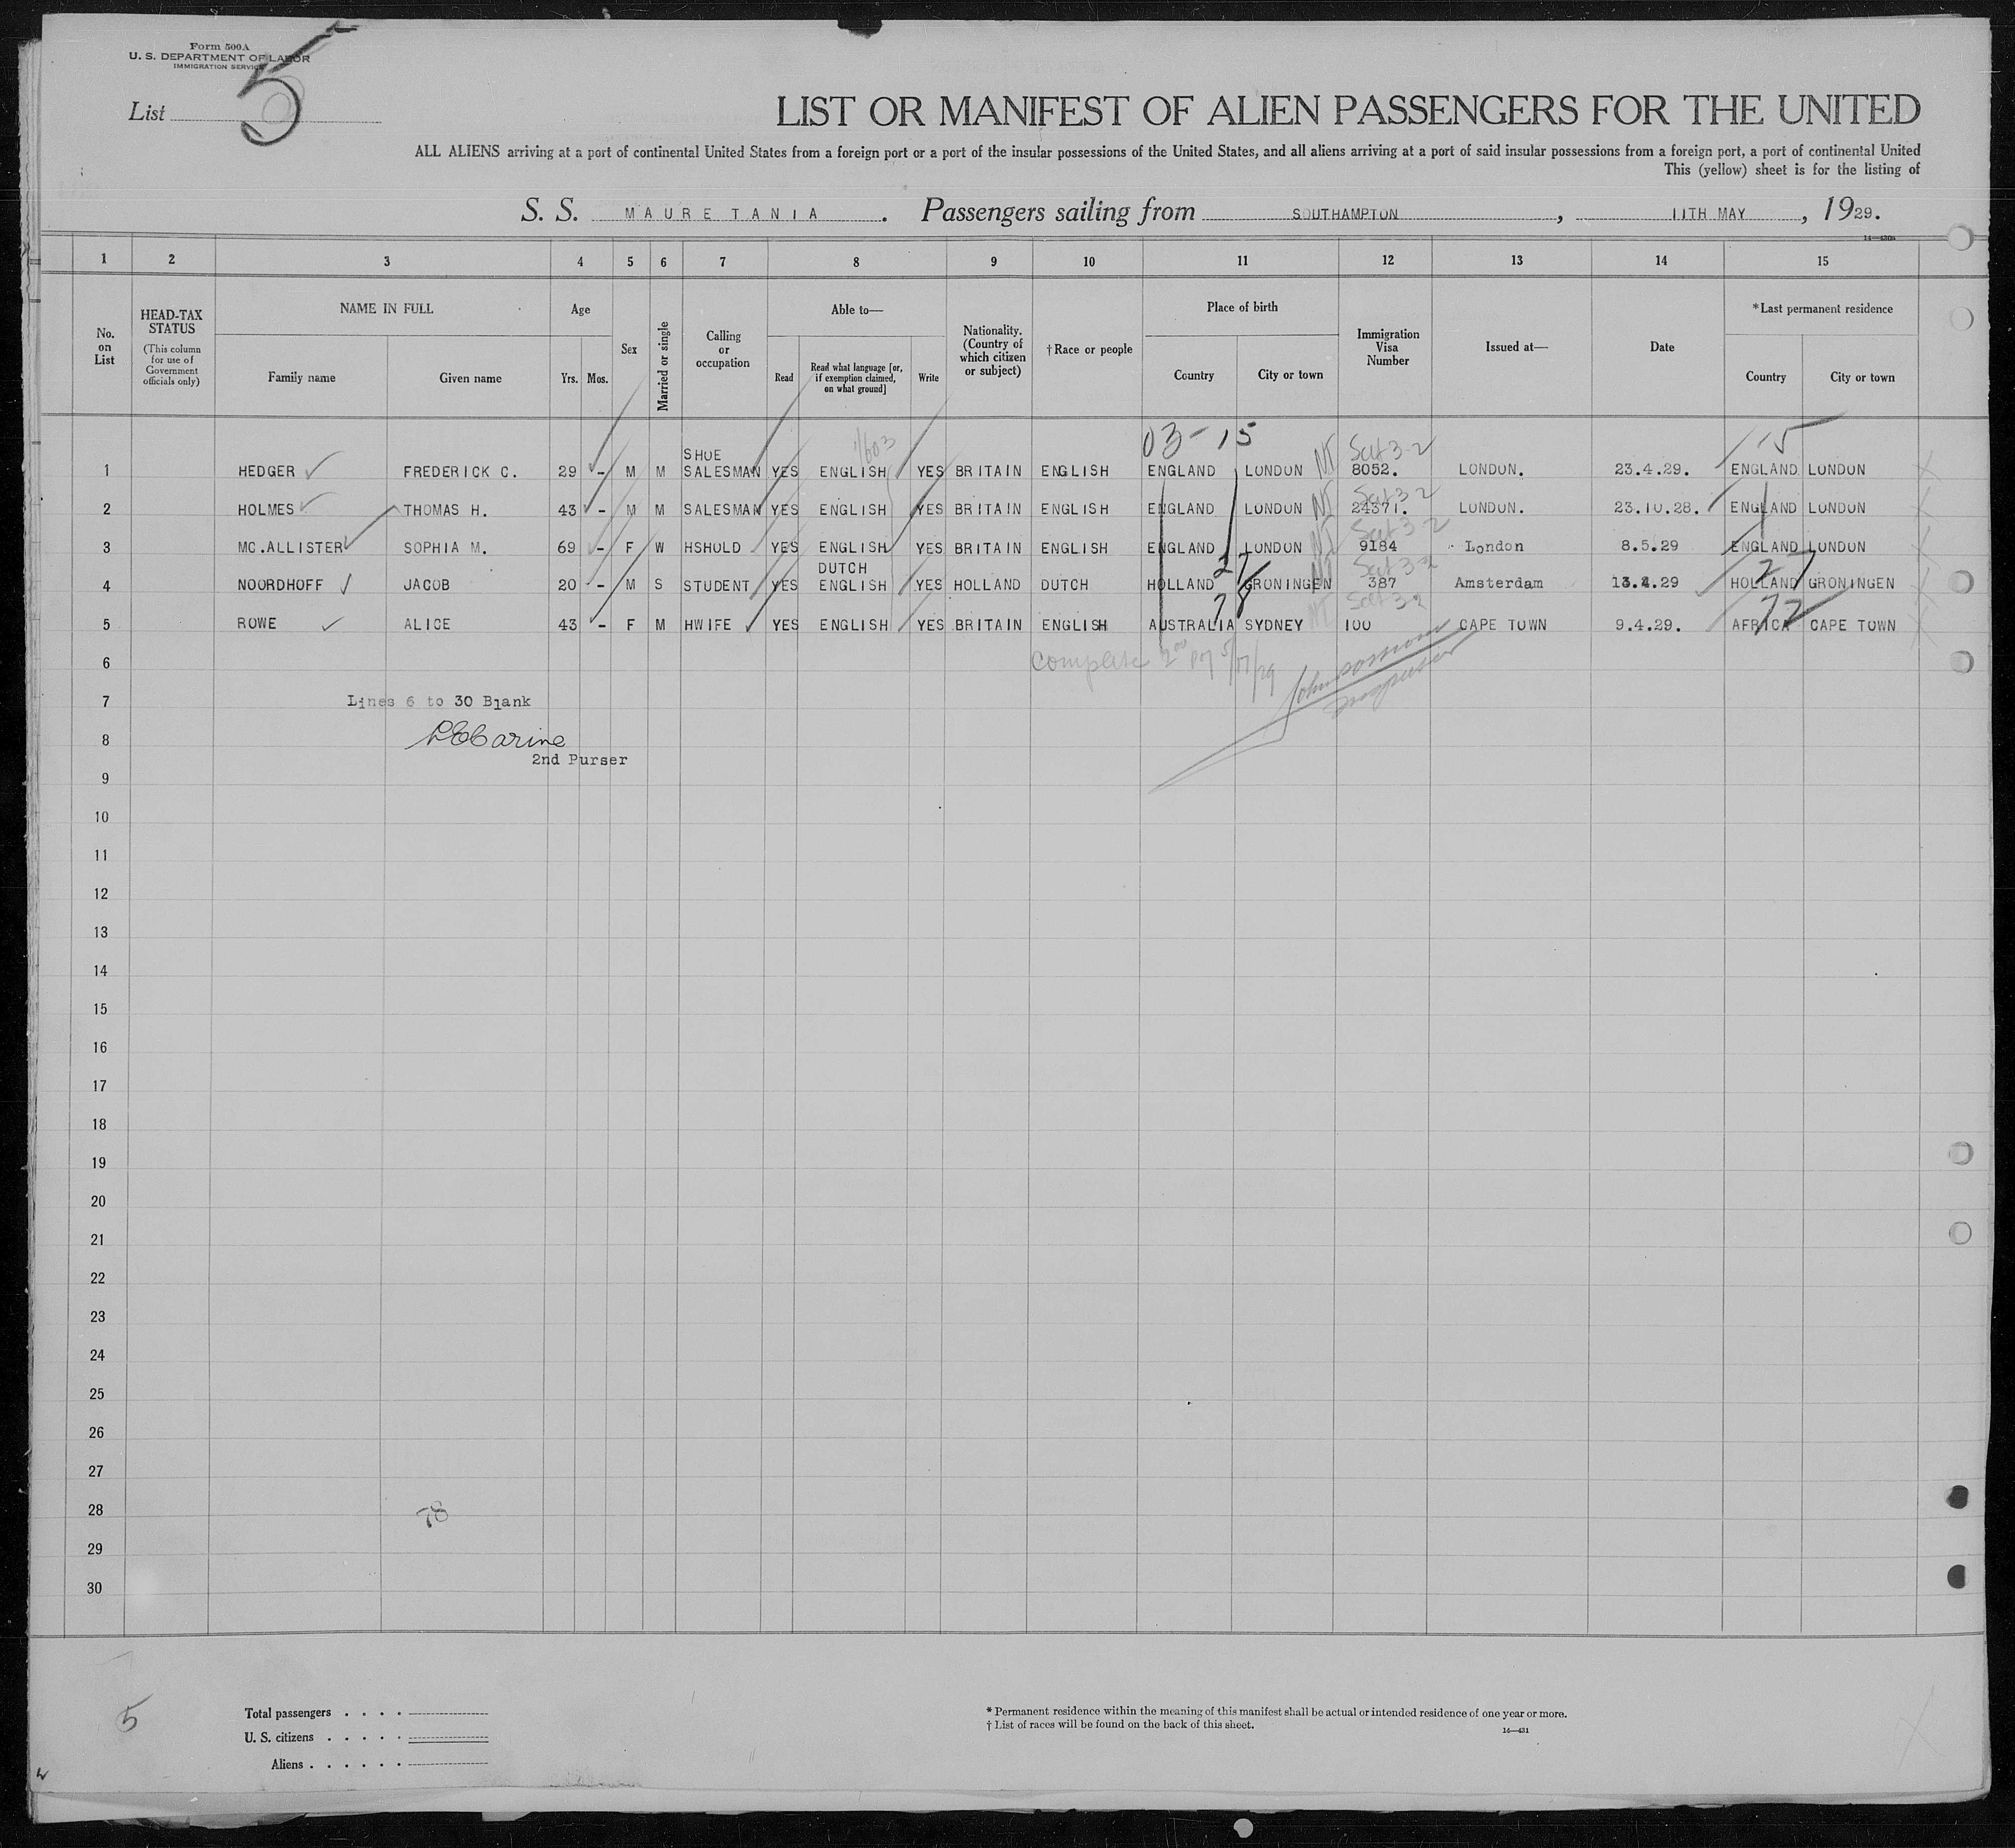 Form 500A
U. S. DEPARTMENT OF LABOR
IMMIGRATION SERVICE
List 5
LIST OR MANIFEST OF ALIEN PASSENGERS FOR THE UNITED
ALL ALIENS arriving at a port of continental United States from a foreign port or a port of the insular possessions of the United States, and all aliens arriving at a port of said insular possessions from a foreign port, a port of continental United
This (yellow) sheet is for the listing of
S. S. MAURETANIA. Passengers sailing from SOUTHAMPTON, 11TH MAY, 1929.
14—430a
1 2 3 4 5 6 7 8 9 10 11 12 13 14 15
No. on List
HEAD-TAX STATUS
(This column for use of Government officials only)
NAME IN FULL
Family name Given name
Age
Yrs. Mos.
Sex
Married or single
Calling or occupation
Able to—
Read
Read what language [or, if exemption claimed, on what ground]
Write
Nationality. (Country of which citizen or subject)
†Race or people
Place of birth
Country City or town
Immigration Visa Number
Issued at—
Date
*Last permanent residence
Country City or town
03-15 15
1 HEDGER FREDERICK C. 29 - M M SHOE SALESMAN YES ENGLISH YES BRITAIN ENGLISH ENGLAND LONDON 8052. LONDON. 23.4.29. ENGLAND LONDON
2 HOLMES THOMAS H. 43 - M M SALESMAN YES ENGLISH YES BRITAIN ENGLISH ENGLAND LONDON 24371. LONDON. 23.10.28. ENGLAND LONDON
3 MC.ALLISTER SOPHIA M. 69 - F W HSHOLD YES ENGLISH YES BRITAIN ENGLISH ENGLAND LONDON 9184 London 8.5.29 ENGLAND LONDON
27 27
4 NOORDHOFF JACOB 20 - M S STUDENT YES DUTCH ENGLISH YES HOLLAND DUTCH HOLLAND GRONINGEN 387 Amsterdam 29 HOLLAND GRONINGEN
78 72
5 ROWE ALICE 43 - F M HWIFE YES ENGLISH YES BRITAIN ENGLISH AUSTRALIA SYDNEY 100 CAPE TOWN 9.4.29. AFRICA CAPE TOWN
6 complete
7 Lines 6 to 30 Blank
8
2nd Purser
9
10
11
12
13
14
15
16
17
18
19
20
21
22
23
24
25
26
27
28 78
29
30
5
Total passengers . . . .
U. S. citizens . . . . .
Aliens . . . . . .
* Permanent residence within the meaning of this manifest shall be actual or intended residence of one year or more.
† List of races will be found on the back of this sheet.
14—431